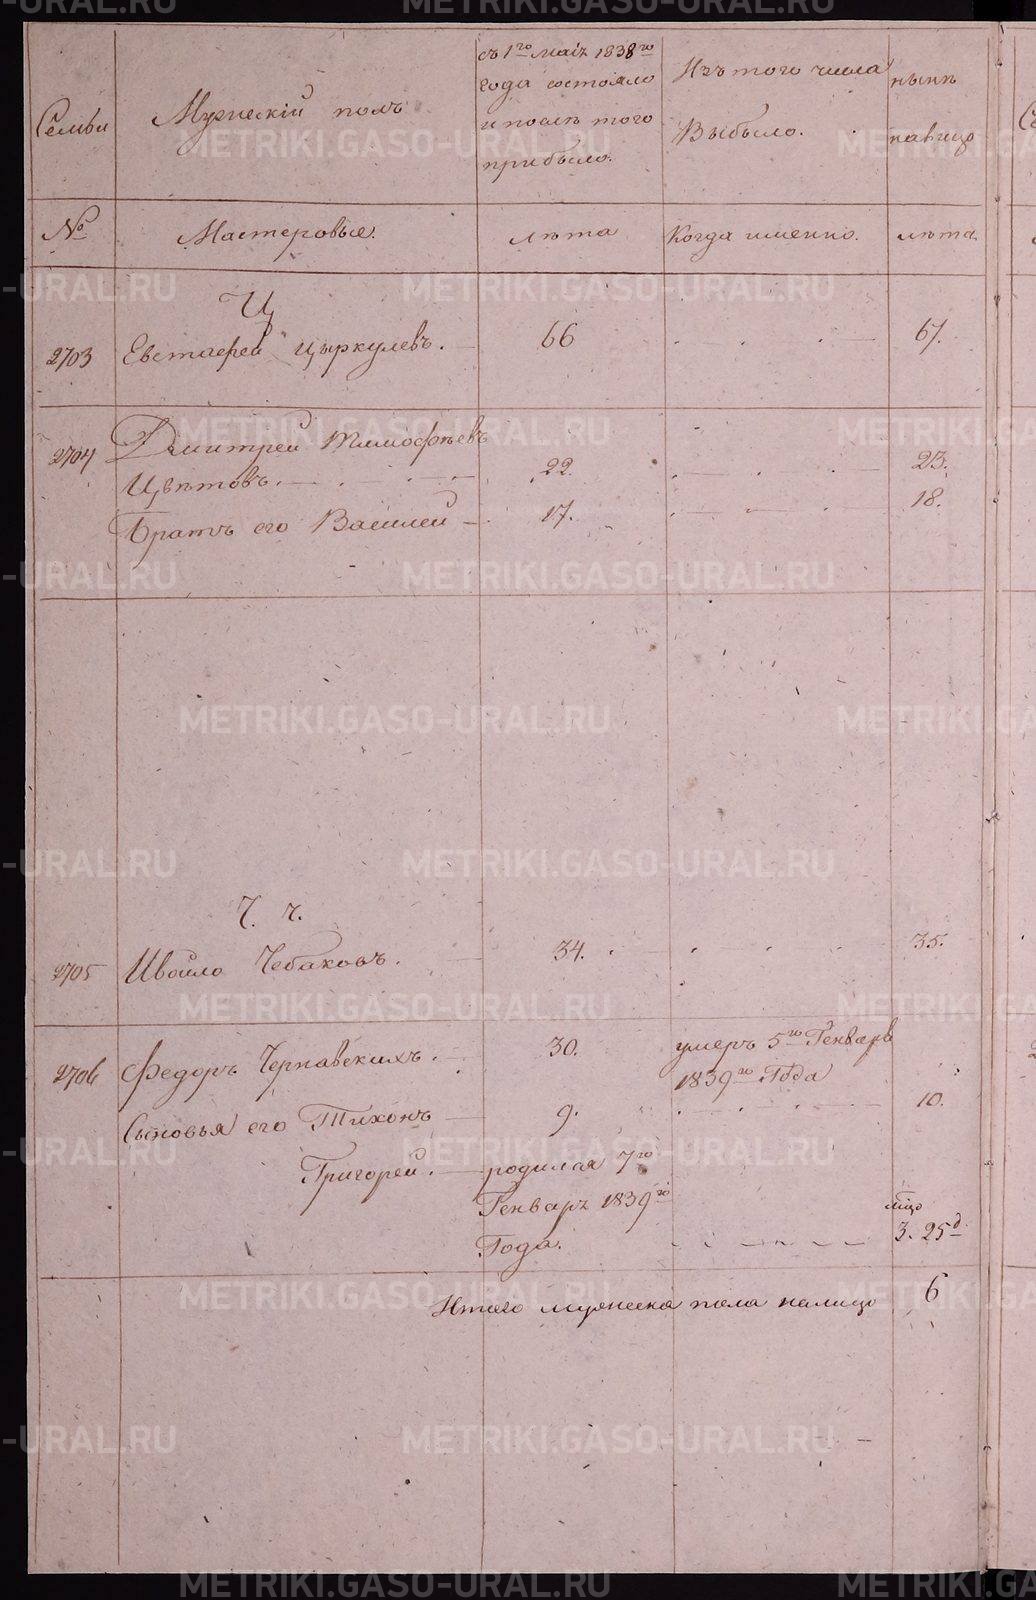 Семьи
Мужескій полъ
съ 1го маія 1838го
года состояло
и послѣ того
прибыло.
Изъ того числа
Выбыло.
нынѣ
налицо
№
Мастеровые.
лѣта
Когда именно.
лѣта
Ц
2703 Евстафей Цыркулевъ. 66 67.
2704 Дмитрей Тимофѣевъ
Цвѣтовъ. 22 23.
Братъ его Василей 17. 18.
Ч. ч.
2705 Чебаковъ. 34. 35.
2706 Федоръ Чернавскихъ. 30. умеръ 5го Генваря
1839го Года
Сыновья его Тихонъ 9. 10.
Григорей. родился 7го
Генваря 1839го
Года. мцо
3. 25д
Итого мужеска пола налицо 6
METRIKI.GASO-URAL.RU